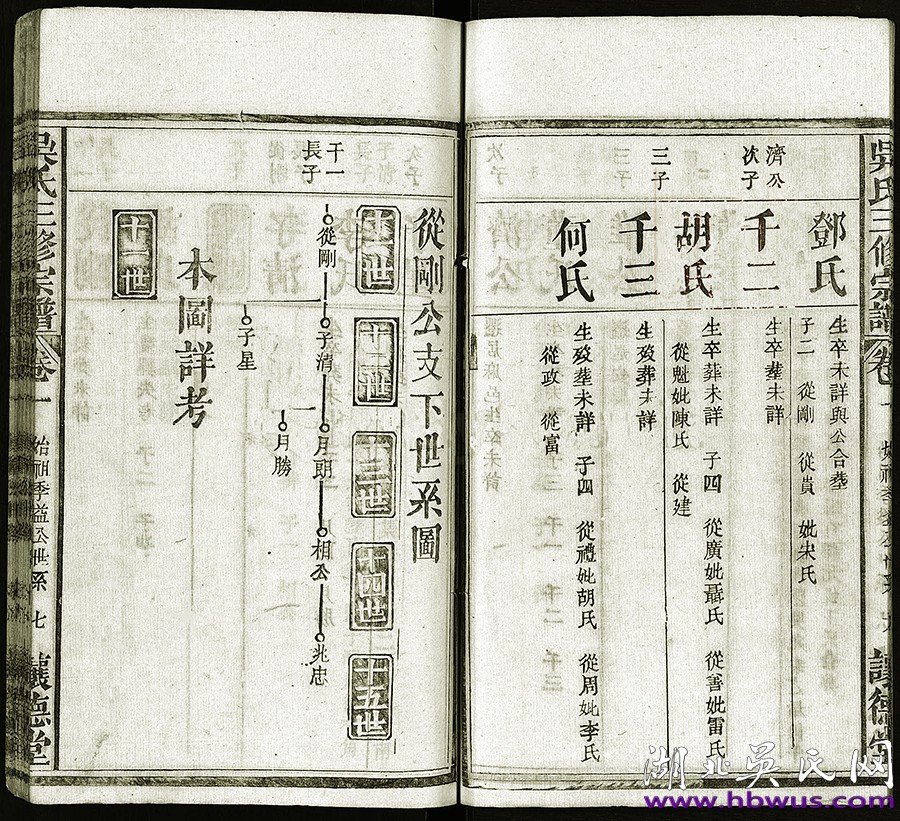 吳氏三修宗譜
卷一
讓德堂
鄧氏
生卒未詳與公合葬
子二 從剛 從貴 妣朱氏
濟公
次子
千二
生卒葬未詳
胡氏
生卒葬未詳 子四 從廣妣聶氏 從善妣雷氏
從魁妣陳氏 從建
三子
千三
生歿葬未詳
何氏
生歿葬未詳 子四 從禮妣胡氏 從周妣李氏
從政 從富
從剛公支下世系圖
十一世
十二世
十三世
十四世
十五世
千一
長子
從剛
子清
月朗
相公
兆忠
月勝
子星
本圖詳考
十一世
吳氏三修宗譜
卷一
始祖季益公世系 七
讓德堂
湖北吳氏网
www.hbwus.com